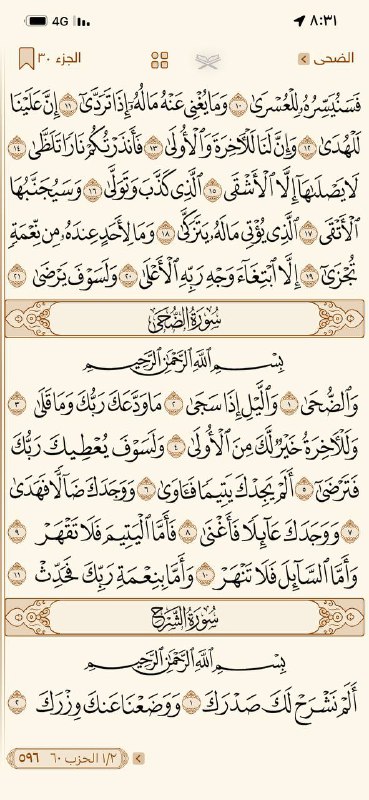 ٨:٣١ 4G
الضحى الجزء ٣٠
فَسَنُيَسِّرُهُۥ لِلْعُسْرَىٰ ١٠ وَمَا يُغْنِى عَنْهُ مَالُهُۥٓ إِذَا تَرَدَّىٰٓ ١١ إِنَّ عَلَيْنَا
لَلْهُدَىٰ ١٢ وَإِنَّ لَنَا لَلْءَاخِرَةَ وَٱلْأُولَىٰ ١٣ فَأَنذَرْتُكُمْ نَارًا تَلَظَّىٰ ١٤
لَا يَصْلَىٰهَآ إِلَّا ٱلْأَشْقَى ١٥ ٱلَّذِى كَذَّبَ وَتَوَلَّىٰ ١٦ وَسَيُجَنَّبُهَا
ٱلْأَتْقَى ١٧ ٱلَّذِى يُؤْتِى مَالَهُۥ يَتَزَكَّىٰ ١٨ وَمَا لِأَحَدٍ عِندَهُۥ مِن نِّعْمَةٍ
تُجْزَىٰٓ ١٩ إِلَّا ٱبْتِغَآءَ وَجْهِ رَبِّهِ ٱلْأَعْلَىٰ ٢٠ وَلَسَوْفَ يَرْضَىٰ ٢١
سُورَةُ الضُّحَىٰ
بِسْمِ ٱللَّهِ ٱلرَّحْمَٰنِ ٱلرَّحِيمِ
وَٱلضُّحَىٰ ١ وَٱلَّيْلِ إِذَا سَجَىٰ ٢ مَا وَدَّعَكَ رَبُّكَ وَمَا قَلَىٰ ٣
وَلَلْءَاخِرَةُ خَيْرٌ لَّكَ مِنَ ٱلْأُولَىٰ ٤ وَلَسَوْفَ يُعْطِيكَ رَبُّكَ
فَتَرْضَىٰٓ ٥ أَلَمْ يَجِدْكَ يَتِيمًا فَـَٔاوَىٰ ٦ وَوَجَدَكَ ضَآلًّا فَهَدَىٰ
٧ وَوَجَدَكَ عَآئِلًا فَأَغْنَىٰ ٨ فَأَمَّا ٱلْيَتِيمَ فَلَا تَقْهَرْ ٩
وَأَمَّا ٱلسَّآئِلَ فَلَا تَنْهَرْ ١٠ وَأَمَّا بِنِعْمَةِ رَبِّكَ فَحَدِّثْ ١١
سُورَةُ الشَّرْحِ
بِسْمِ ٱللَّهِ ٱلرَّحْمَٰنِ ٱلرَّحِيمِ
أَلَمْ نَشْرَحْ لَكَ صَدْرَكَ ١ وَوَضَعْنَا عَنكَ وِزْرَكَ ٢
١/٢ الحزب ٦٠ ٥٩٦